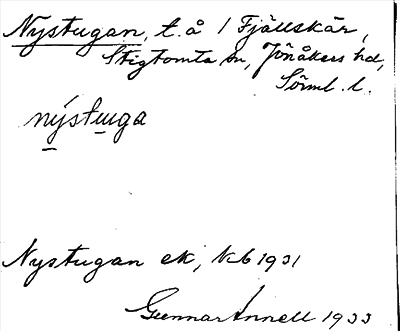 Nystugan, t. å 1 Fjällskär,
Stigtomta sn, Jönåkers hd,
Sörml. l.
nýstuga
Nystugan ek, Kb 1931
Gunnar Ånnell 1933